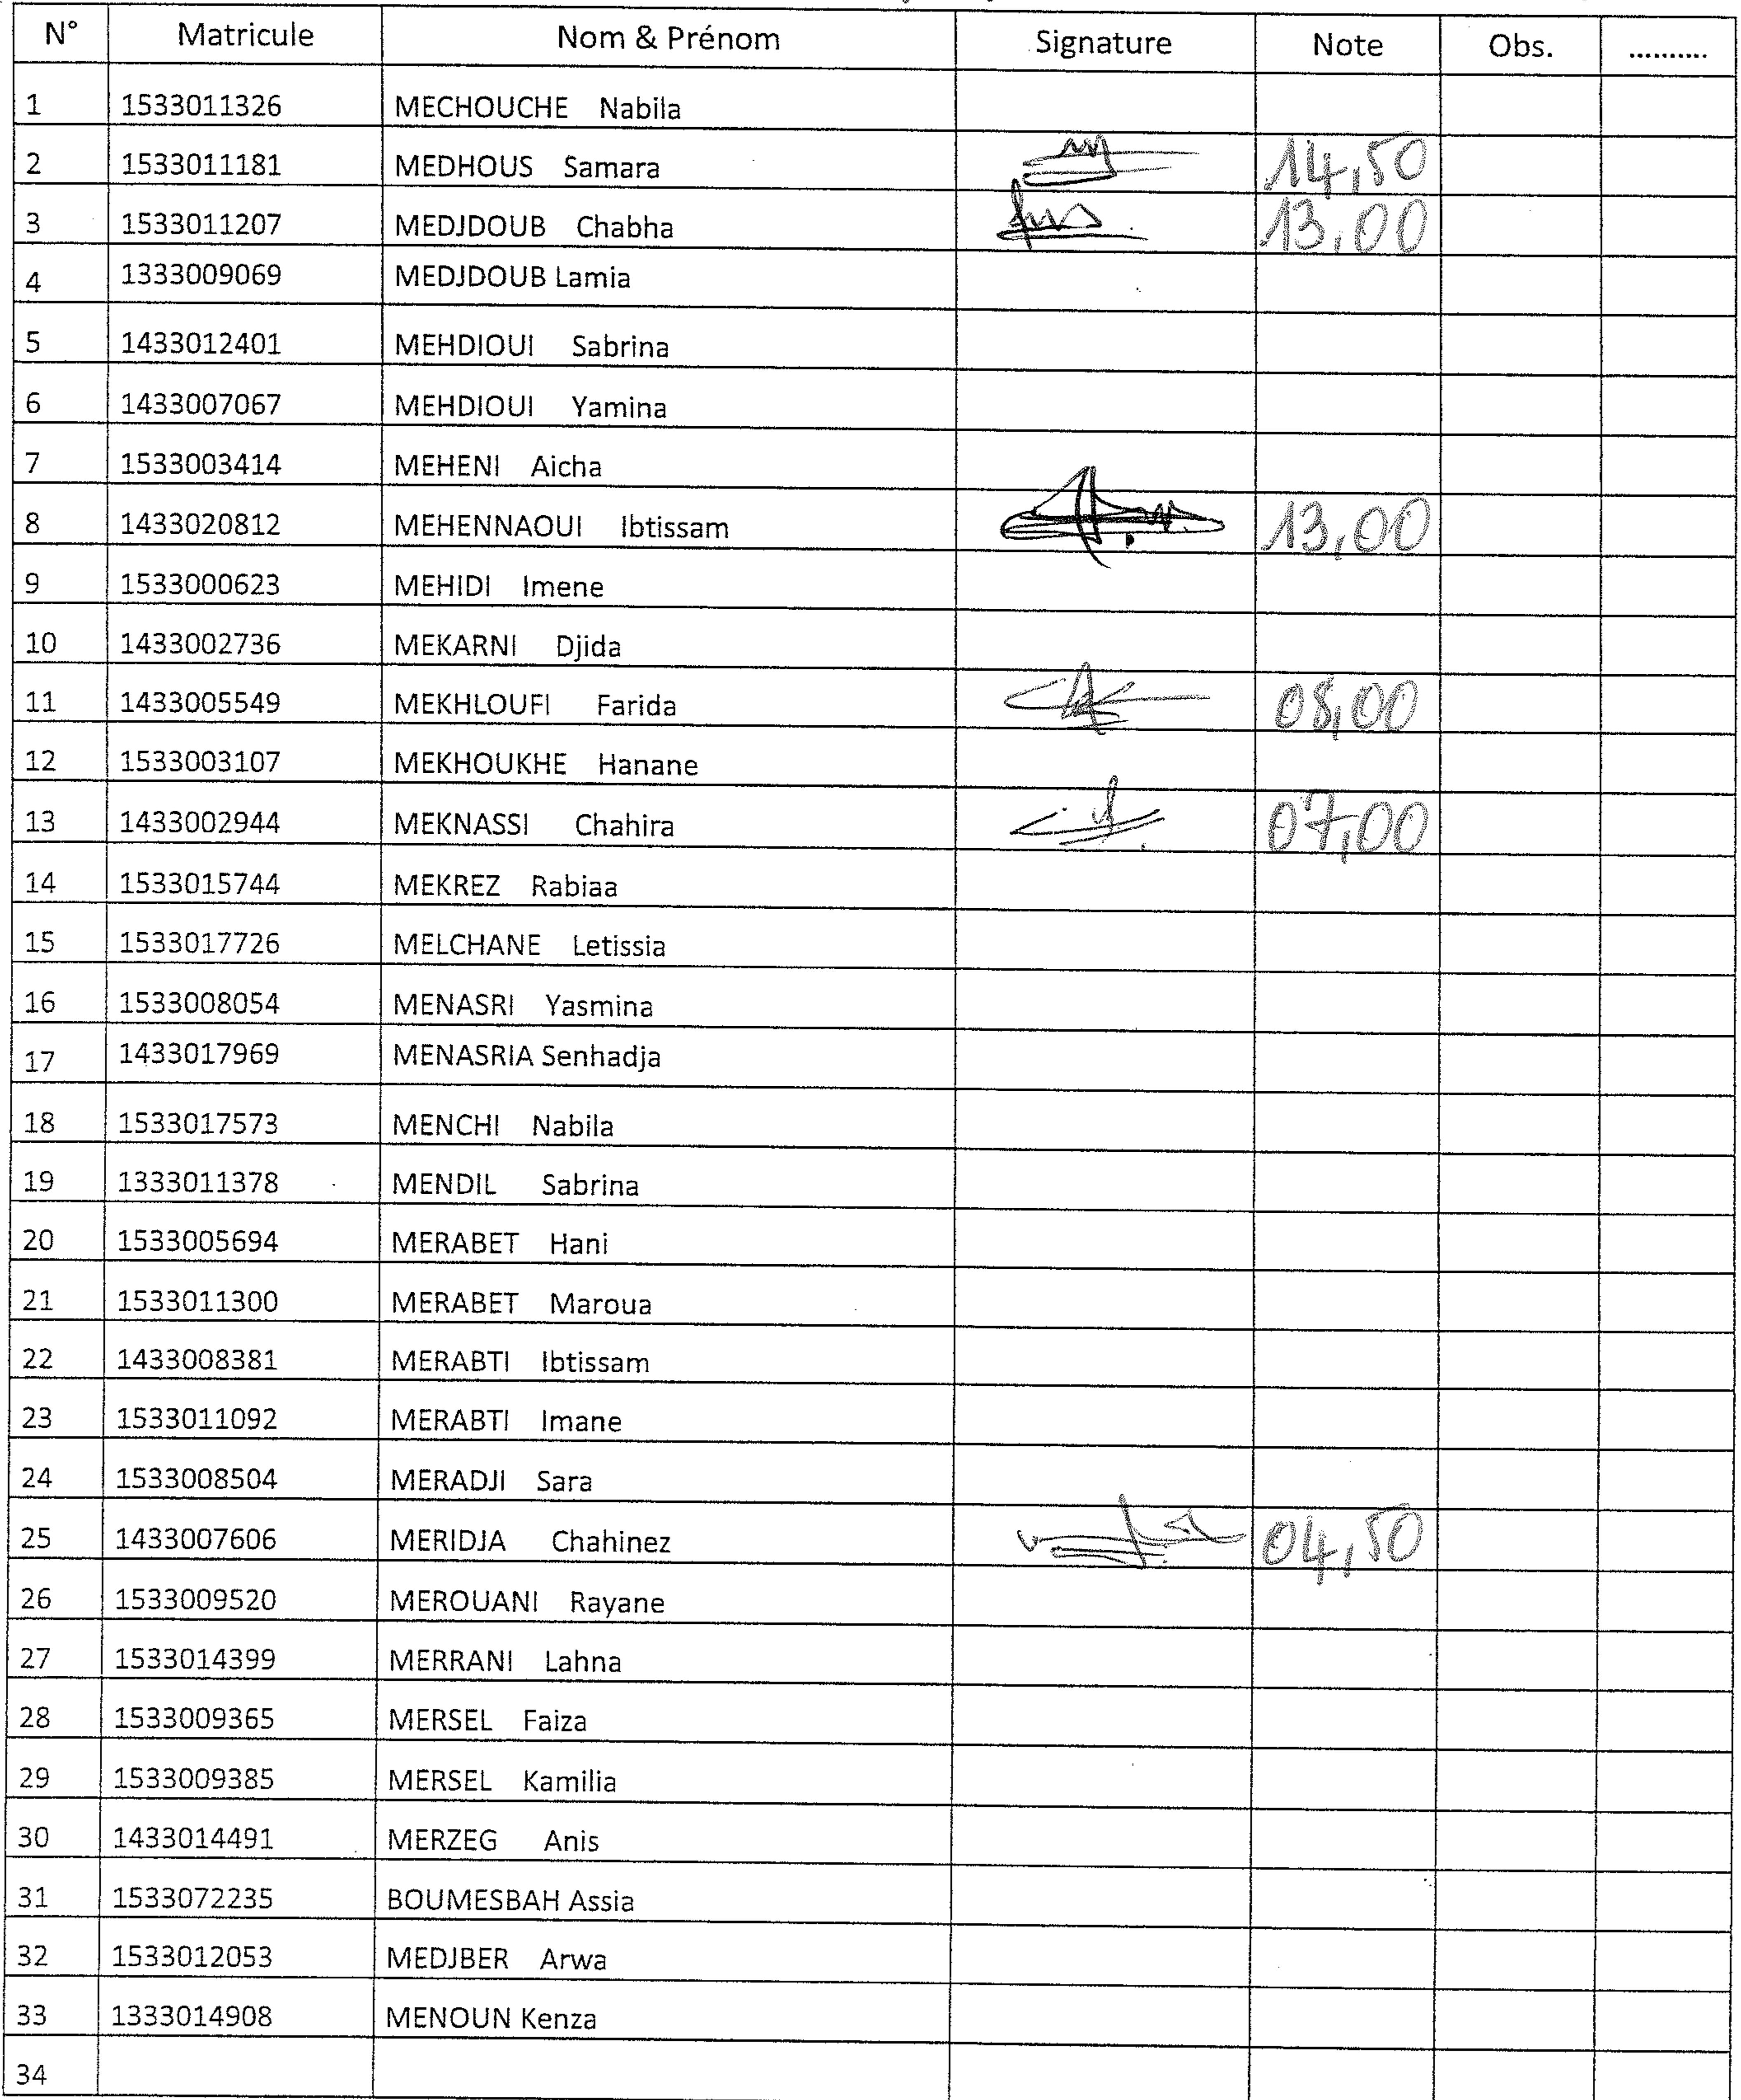 N° Matricule Nom & Prénom Signature Note Obs. ..........
1 1533011326 MECHOUCHE Nabila
2 1533011181 MEDHOUS Samara 14,50
3 1533011207 MEDJDOUB Chabha 13,00
4 1333009069 MEDJDOUB Lamia
5 1433012401 MEHDIOUI Sabrina
6 1433007067 MEHDIOUI Yamina
7 1533003414 MEHENI Aicha
8 1433020812 MEHENNAOUI Ibtissam 13,00
9 1533000623 MEHIDI Imene
10 1433002736 MEKARNI Djida
11 1433005549 MEKHLOUFI Farida 08,00
12 1533003107 MEKHOUKHE Hanane
13 1433002944 MEKNASSI Chahira 07,00
14 1533015744 MEKREZ Rabiaa
15 1533017726 MELCHANE Letissia
16 1533008054 MENASRI Yasmina
17 1433017969 MENASRIA Senhadja
18 1533017573 MENCHI Nabila
19 1333011378 MENDIL Sabrina
20 1533005694 MERABET Hani
21 1533011300 MERABET Maroua
22 1433008381 MERABTI Ibtissam
23 1533011092 MERABTI Imane
24 1533008504 MERADJI Sara
25 1433007606 MERIDJA Chahinez 04,50
26 1533009520 MEROUANI Rayane
27 1533014399 MERRANI Lahna
28 1533009365 MERSEL Faiza
29 1533009385 MERSEL Kamilia
30 1433014491 MERZEG Anis
31 1533072235 BOUMESBAH Assia
32 1533012053 MEDJBER Arwa
33 1333014908 MENOUN Kenza
34